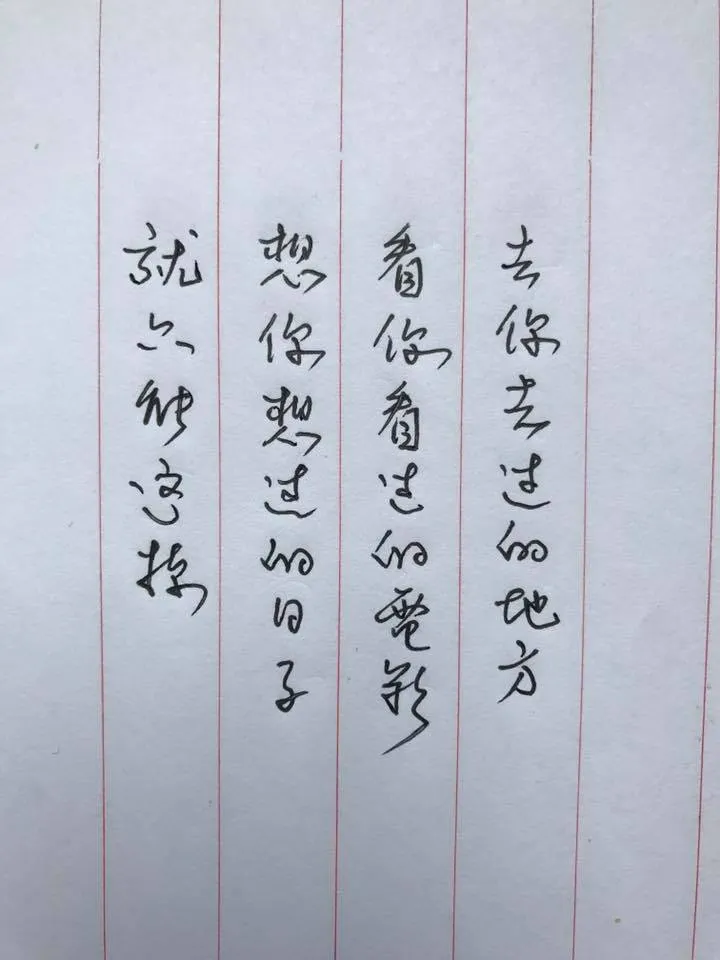 去你去过的地方
看你看过的電影
想你想过的日子
就只能这样